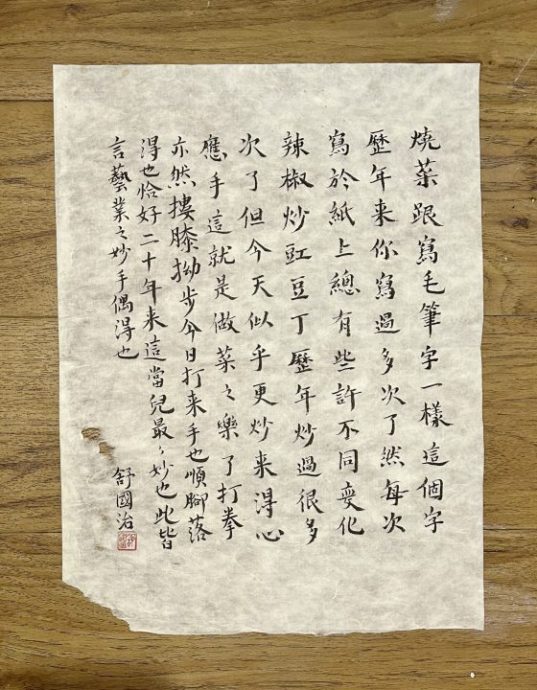 燒菜跟寫毛筆字一樣這個字
歷年来你寫過多次了然每次
寫於紙上總有些許不同變化
辣椒炒豇豆丁歷年炒過很多
次了但今天似乎更炒来得心
應手這就是做菜之樂了打拳
亦然摟膝拗步今日打来手也順腳落
得也恰好二十年来這當兒最〻妙也此皆
言藝業之妙手偶得也
舒國治